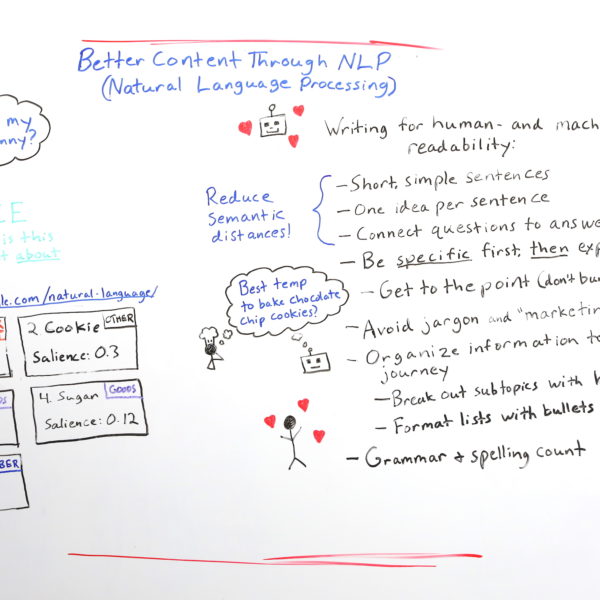 Better Content Through NLP
(Natural Language Processing)
my
nny?
CE
is this
t about
le.com/natural-language/
2 Cookie OTHER
Salience: 0.3
4. Sugar GOODS
Salience: 0.12
BER
Writing for human- and mach
readability:
Reduce
semantic
distances!
- Short, simple sentences
- One idea per sentence
- Connect questions to answe
- Be specific first, then exp
- Get to the point (don't bu
- Avoid jargon and "marketin
- Organize information to
journey
- Break out subtopics with h
- Format lists with bullets
- Grammar & spelling count
Best temp
to bake chocolate
chip cookies?